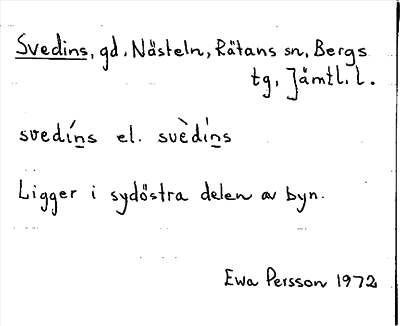 Svedins, gd, Nästeln, Rätans sn, Bergs
tg, Jämtl. l.
svedíns el. svèdíns
Ligger i sydöstra delen av byn.
Ewa Persson 1972